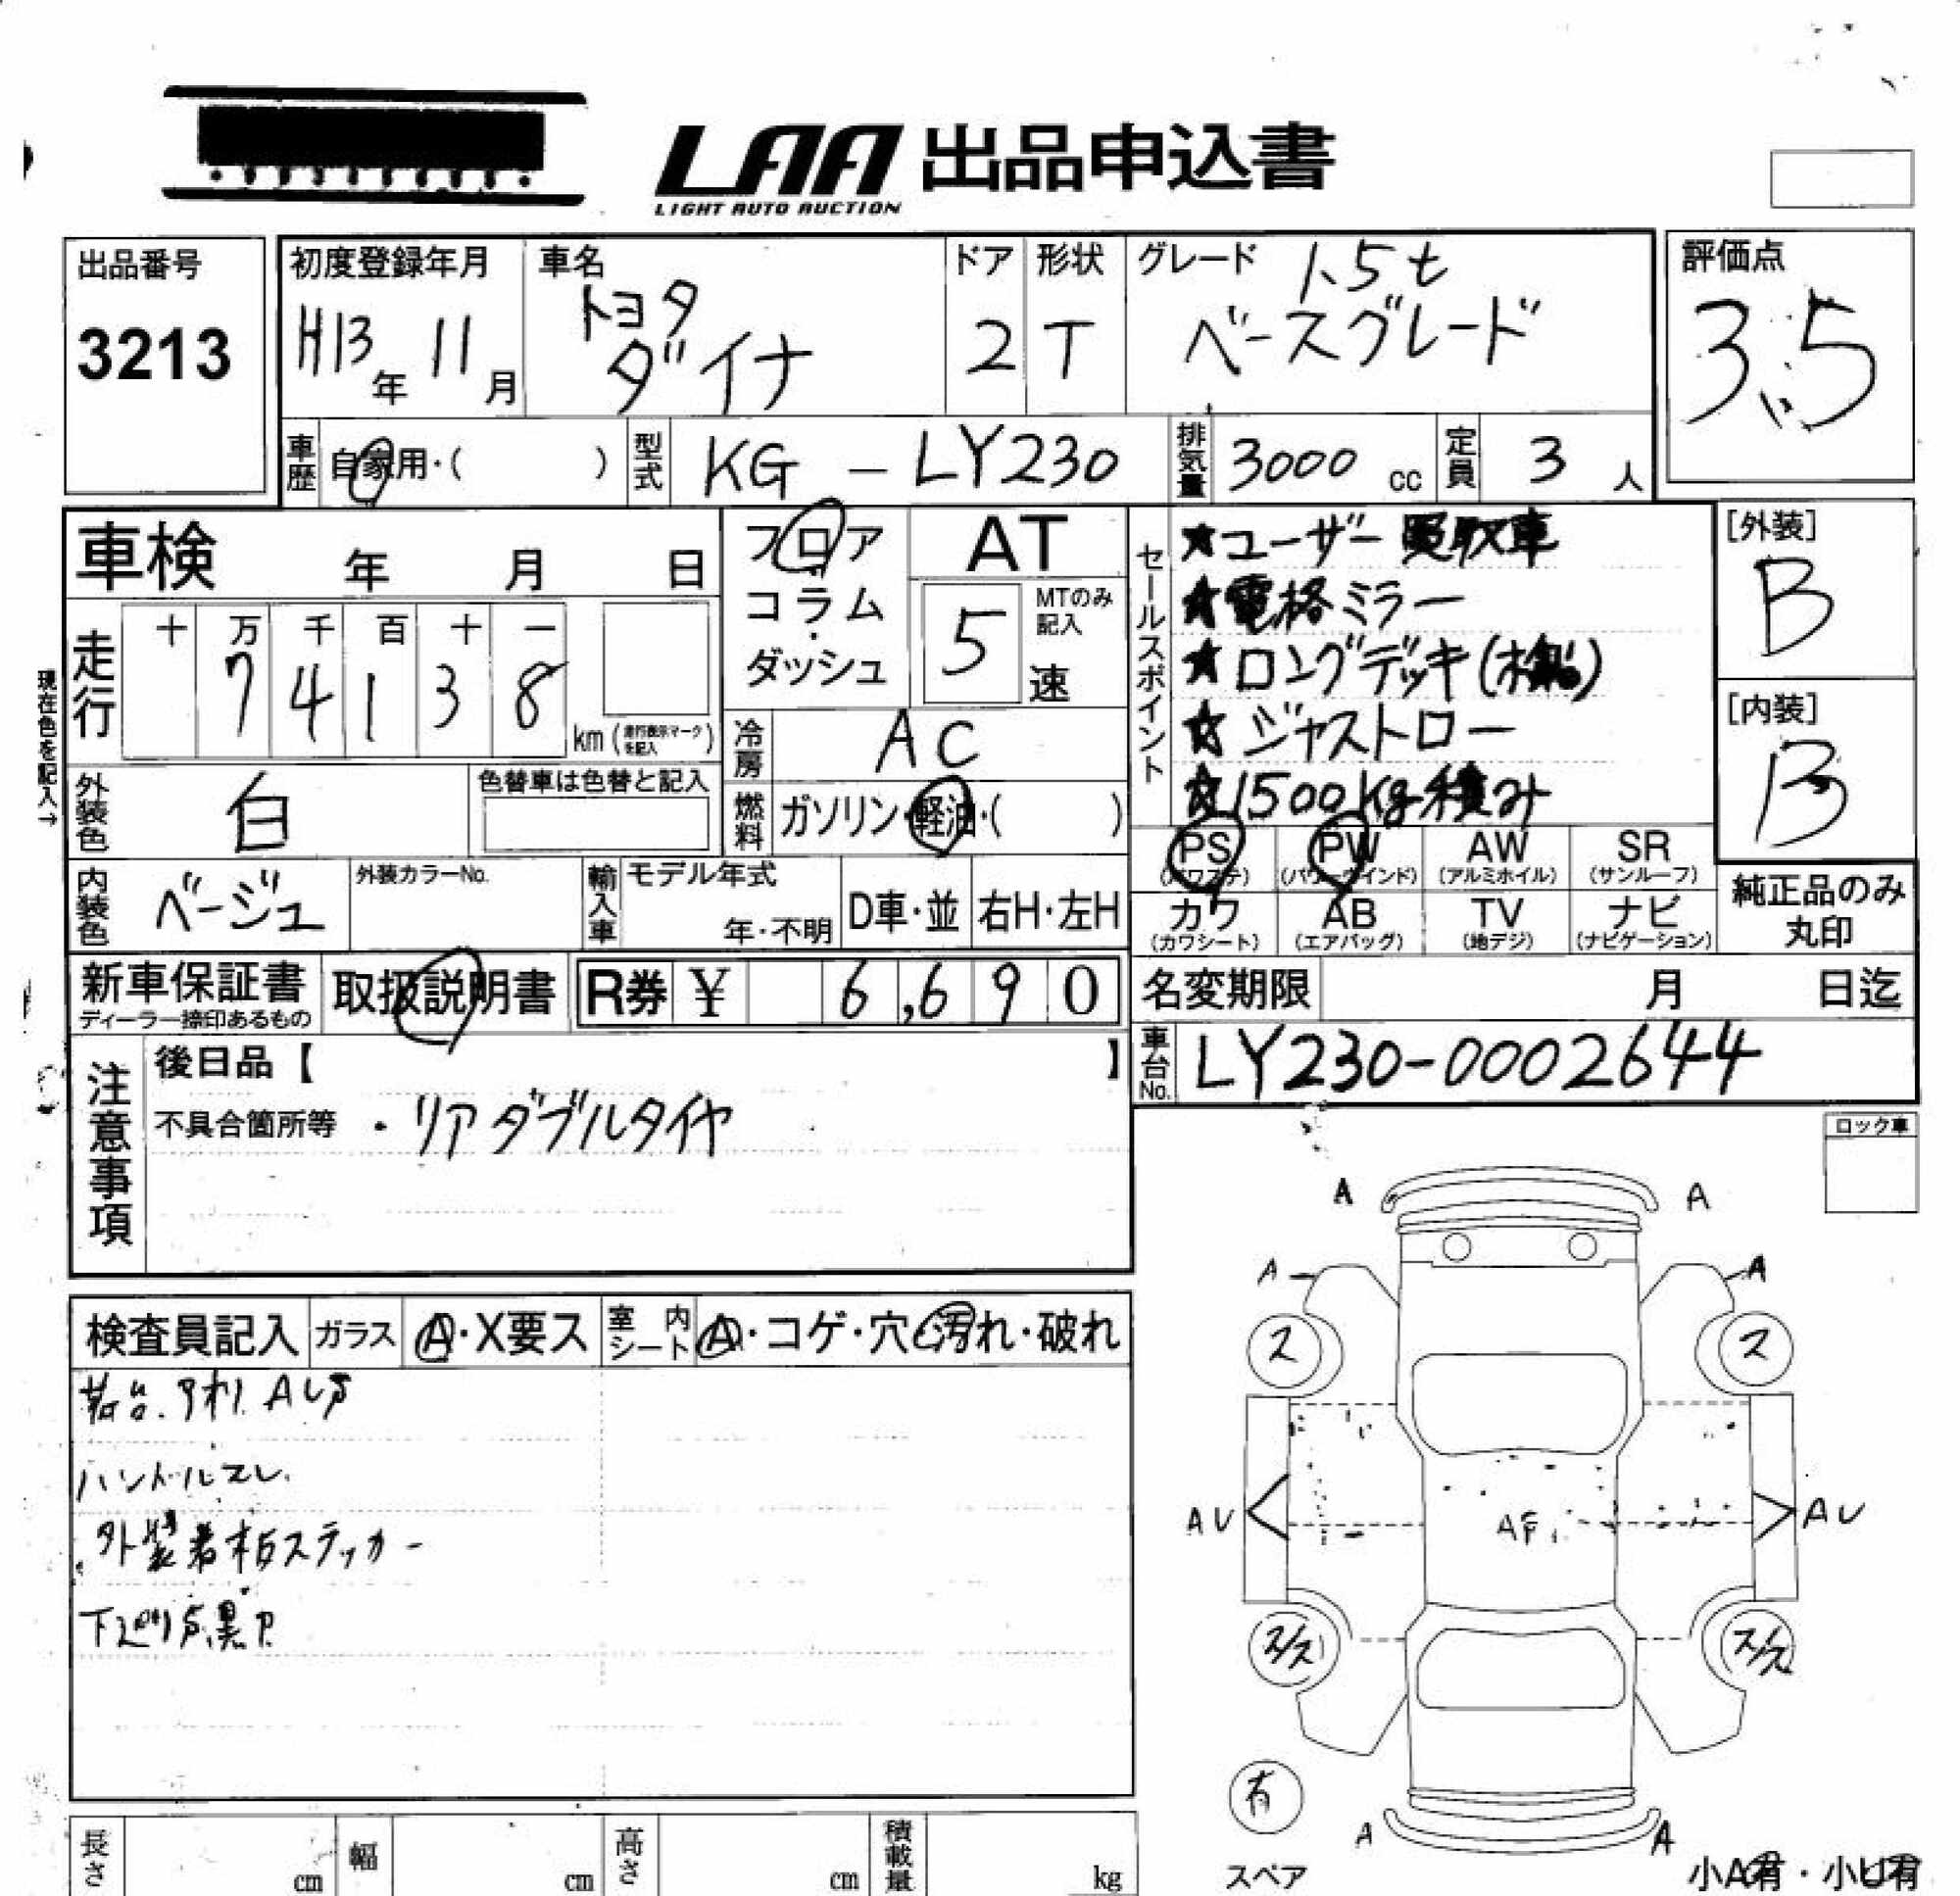 LAA 出品申込書
LIGHT AUTO AUCTION
出品番号
3213
初度登録年月
H13年 11月
車名
トヨタ
ダイナ
ドア
2
形状
T
グレード 1.5t
ベースグレード
評価点
3.5
車歴 自家用・( )
型式 KG-LY230
排気量 3000 cc
定員 3 人
車検 年 月 日
走行
十 万 千 百 十 一
7 4 1 3 8
km (走行表示マークを記入)
現在色を記入→
外装色 白
色替車は色替と記入
内装色 ベージュ
外装カラーNo.
フロア・コラム・ダッシュ
AT
5 速
MTのみ記入
冷房 AC
燃料 ガソリン・軽油・( )
輸入車
モデル年式
年・不明
D車・並
右H・左H
セールスポイント
★ユーザー買取車
★電格ミラー
★ロングデッキ
★ジャストロー
★1500kg積み
[外装]
B
[内装]
B
PS (パワステ)
PW (パワーウインド)
AW (アルミホイル)
SR (サンルーフ)
カワ (カワシート)
AB (エアバッグ)
TV (地デジ)
ナビ (ナビゲーション)
純正品のみ
丸印
新車保証書
ディーラー捺印あるもの
取扱説明書
R券 ¥ 6,690
名変期限 月 日迄
車台No. LY230-0002644
注意事項
後日品【 】
不具合箇所等 ・リアダブルタイヤ
ロック車
検査員記入
ガラス A・X要ス
室内シート A・コゲ・穴・汚れ・破れ
荷台.アオリ AU
ハンドルスレ
外装看板ステッカー
下廻り
A A
A A
ス ス
AU AU
ス/ス ス/ス
有
スペア
A A
小A有・小U有
長さ cm
幅 cm
高さ cm
積載量 kg